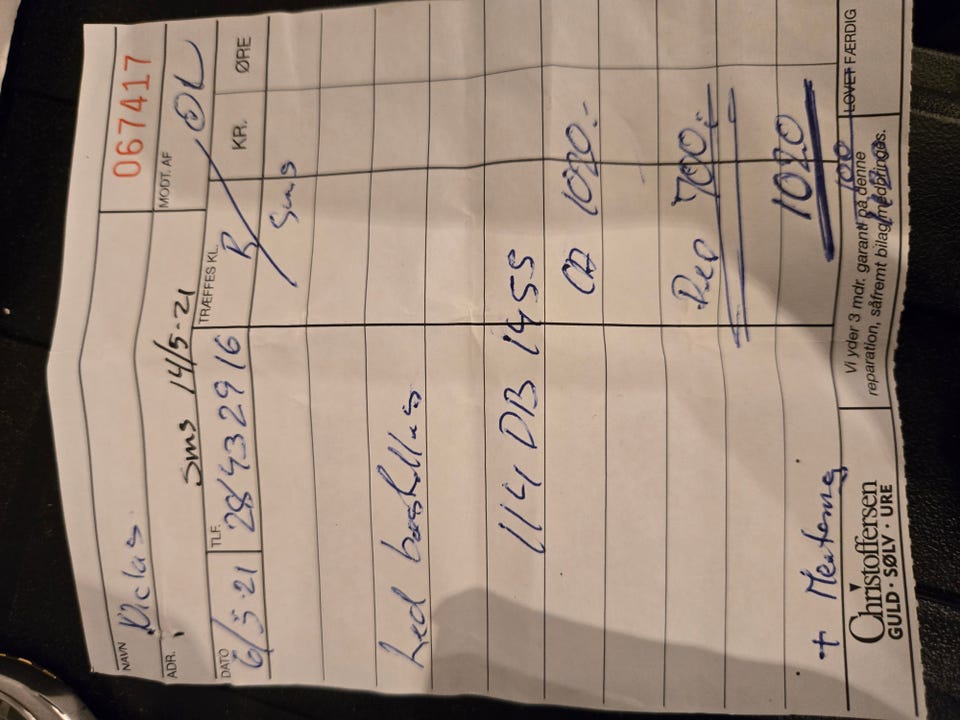 NAVN Niclas 067417
ADR. sms 14/5-21 MODT. AF
DATO 6/5-21 TLF. 28432916 TRÆFFES KL. KR. ØRE
sms
Led bestilles
114 DB 1455
1020.-
Rep 700.-
1020
+ Montering
100
Christoffersen
GULD · SØLV · URE
Vi yder 3 mdr. garanti på denne
reparation, såfremt bilag medbringes.
LOVET FÆRDIG